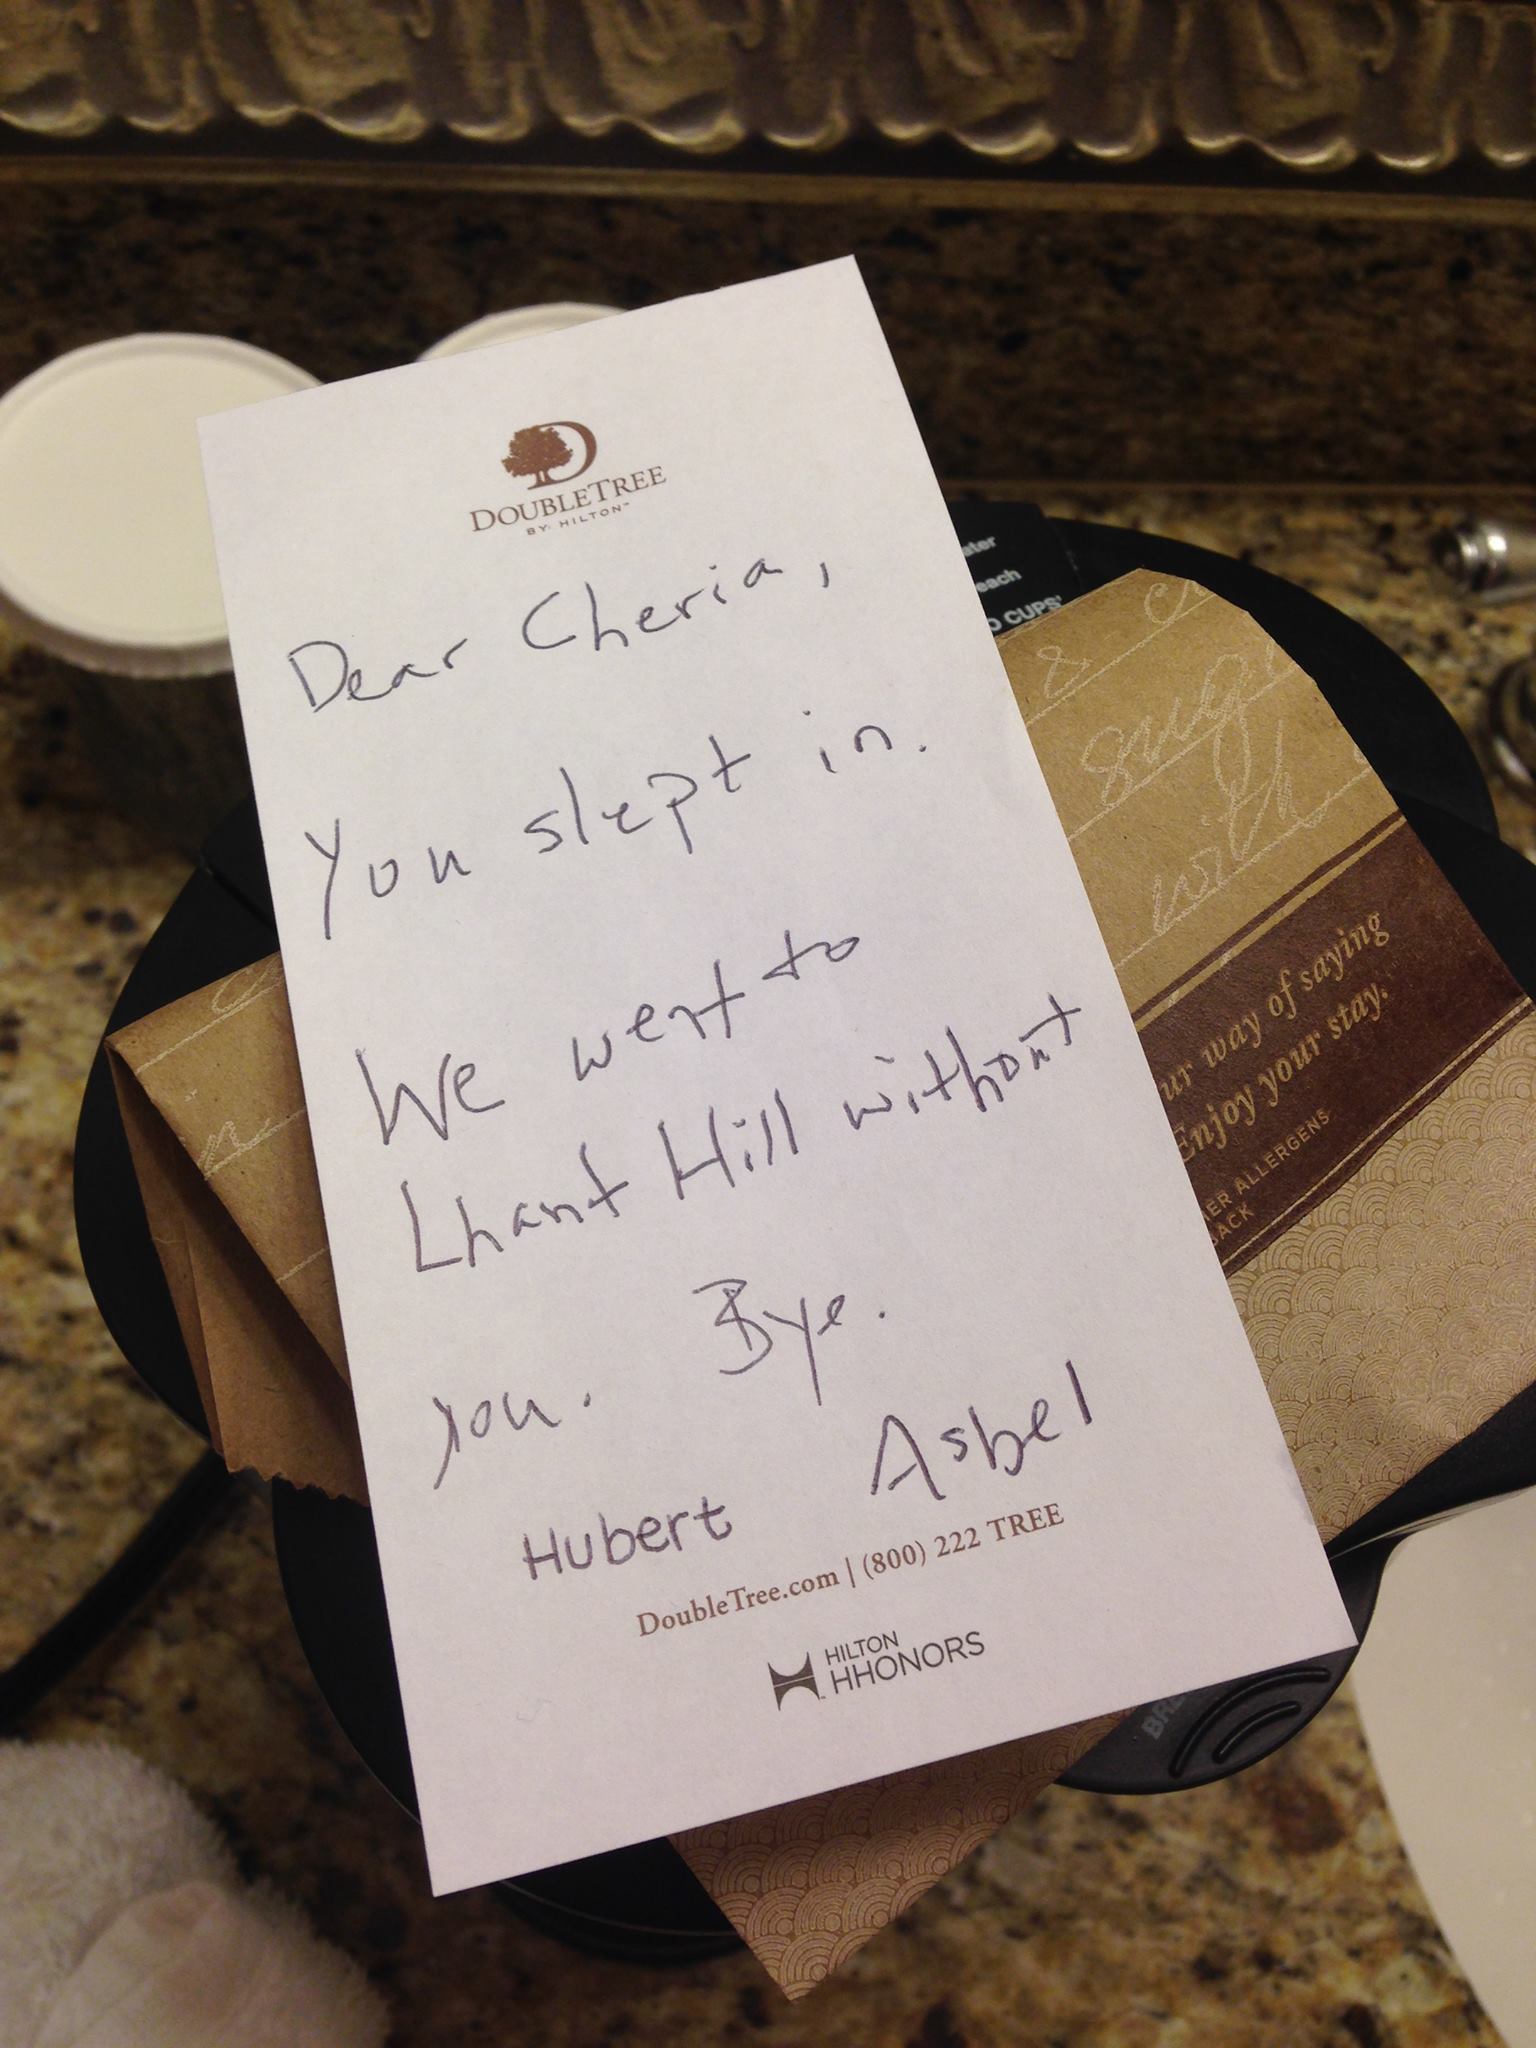 DOUBLETREE
BY HILTON™
Dear Cheria,
You slept in.
We went to
Lhant Hill without
you. Bye.
Hubert Asbel
DoubleTree.com | (800) 222 TREE
HILTON
HHONORS
ater
each
O CUPS'
&
with
ur way of saying
Enjoy your stay.
ER ALLERGENS
BACK